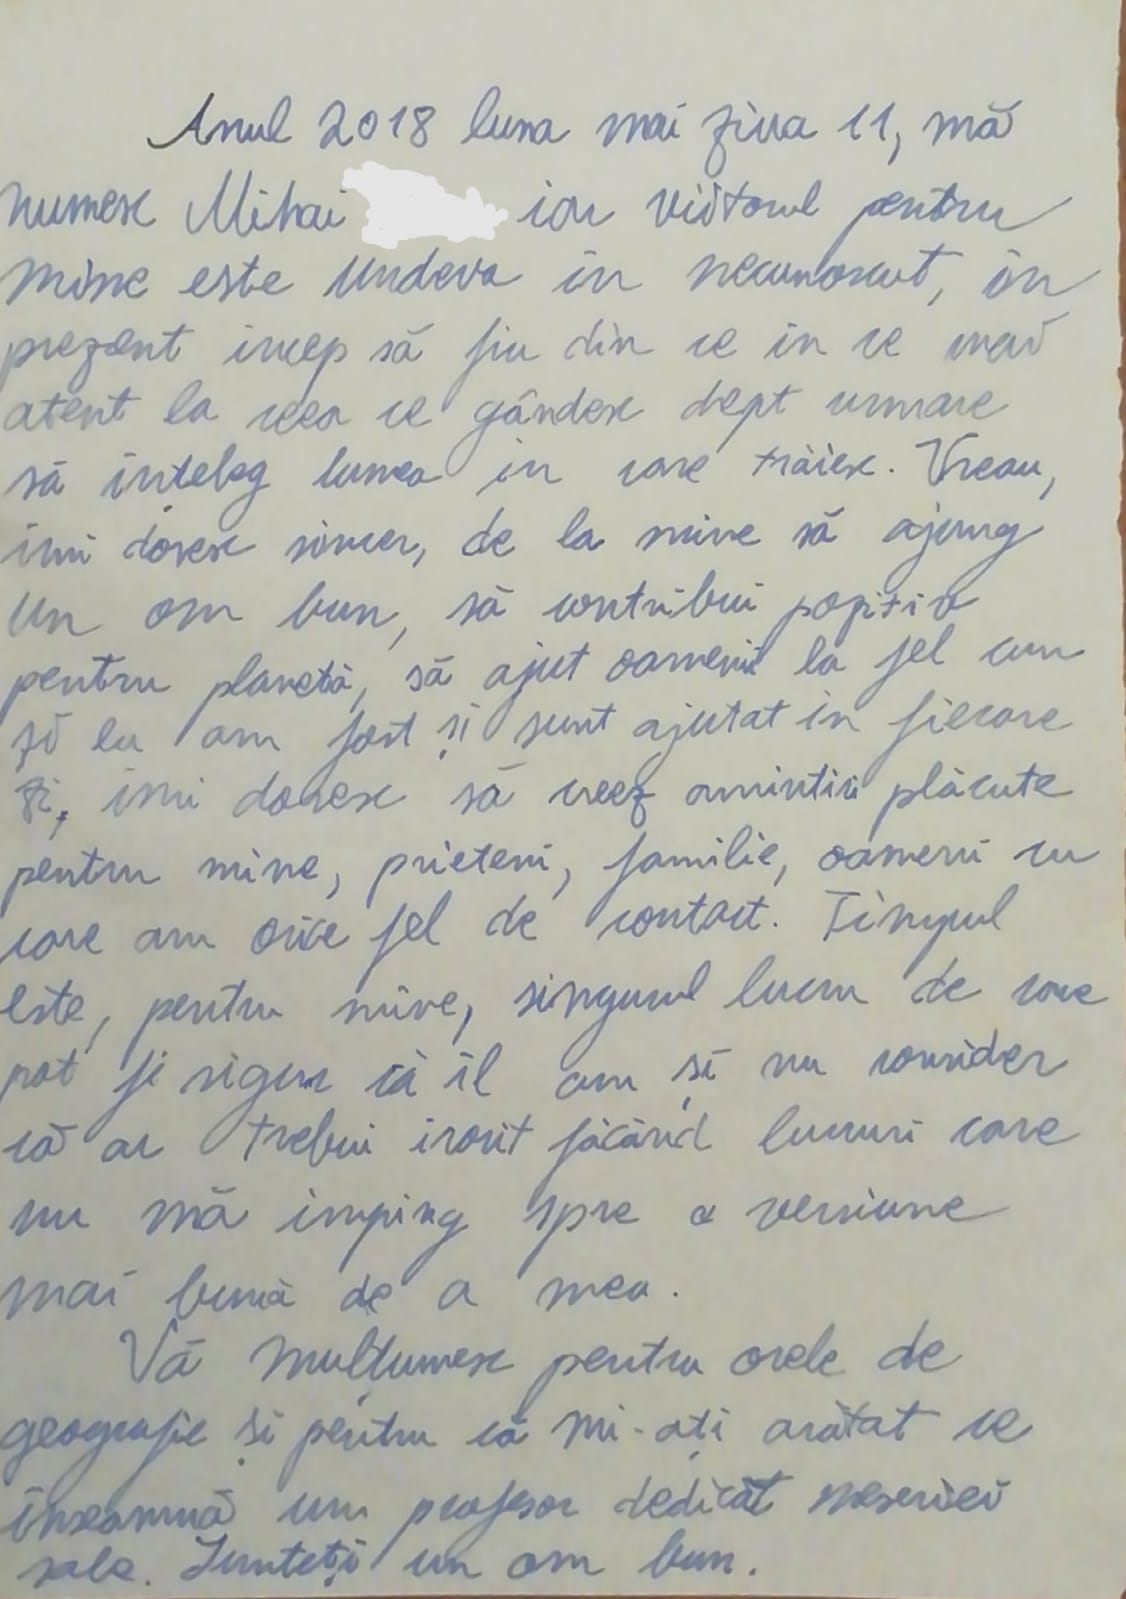 Anul 2018 luna mai ziua 11, mă
numesc Mihai iar viitorul pentru
mine este undeva în necunoscut, în
prezent încep să fiu din ce în ce mai
atent la ceea ce gândesc dept urmare
să înțeleg lumea în care trăiesc. Vreau,
îmi doresc sincer, de la mine să ajung
un om bun, să contribui pozitiv
pentru planetă, să ajut oamenii la fel cum
și eu am fost și sunt ajutat in fiecare
zi, îmi doresc să creez amintiri plăcute
pentru mine, prieteni, familie, oameni cu
care am orice fel de contact. Timpul
este, pentru mine, singurul lucru de care
pot fi sigur că îl am și nu consider
că ar trebui irosit făcând lucruri care
nu mă imping spre o versiune
mai bună de a mea.
Vă mulțumesc pentru orele de
geografie și pentru că mi-ați arătat ce
înseamnă un profesor dedicat meseriei
sale. Sunteți un om bun.